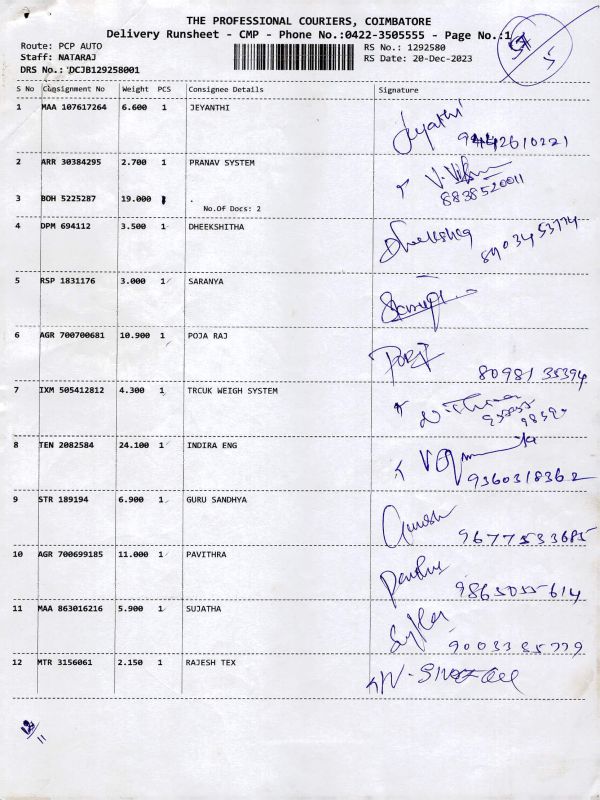 THE PROFESSIONAL COURIERS, COIMBATORE
Delivery Runsheet - CMP - Phone No.:0422-3505555 - Page No.:1
Route: PCP AUTO RS No.: 1292580
Staff: NATARAJ RS Date: 20-Dec-2023
DRS No.: DCJB129258001
S No Consignment No Weight PCS Consignee Details Signature
1 MAA 107617264 6.600 1 JEYANTHI Jeyathi
9442610221
2 ARR 30384295 2.700 1 PRANAV SYSTEM
8838520011
3 BOH 5225287 19.000 .
No.Of Docs: 2
4 DPM 694112 3.500 1 DHEEKSHITHA
8903453774
5 RSP 1831176 3.000 1 SARANYA
6 AGR 700700681 10.900 1 POJA RAJ
80981 35394
7 IXM 505412812 4.300 1 TRCUK WEIGH SYSTEM
8 TEN 2082584 24.100 1 INDIRA ENG
9360318362
9 STR 189194 6.900 1 GURU SANDHYA
9677533685
10 AGR 700699185 11.000 1 PAVITHRA
9865055614
11 MAA 863016216 5.900 1 SUJATHA
9003385779
12 MTR 3156061 2.150 1 RAJESH TEX
12
11